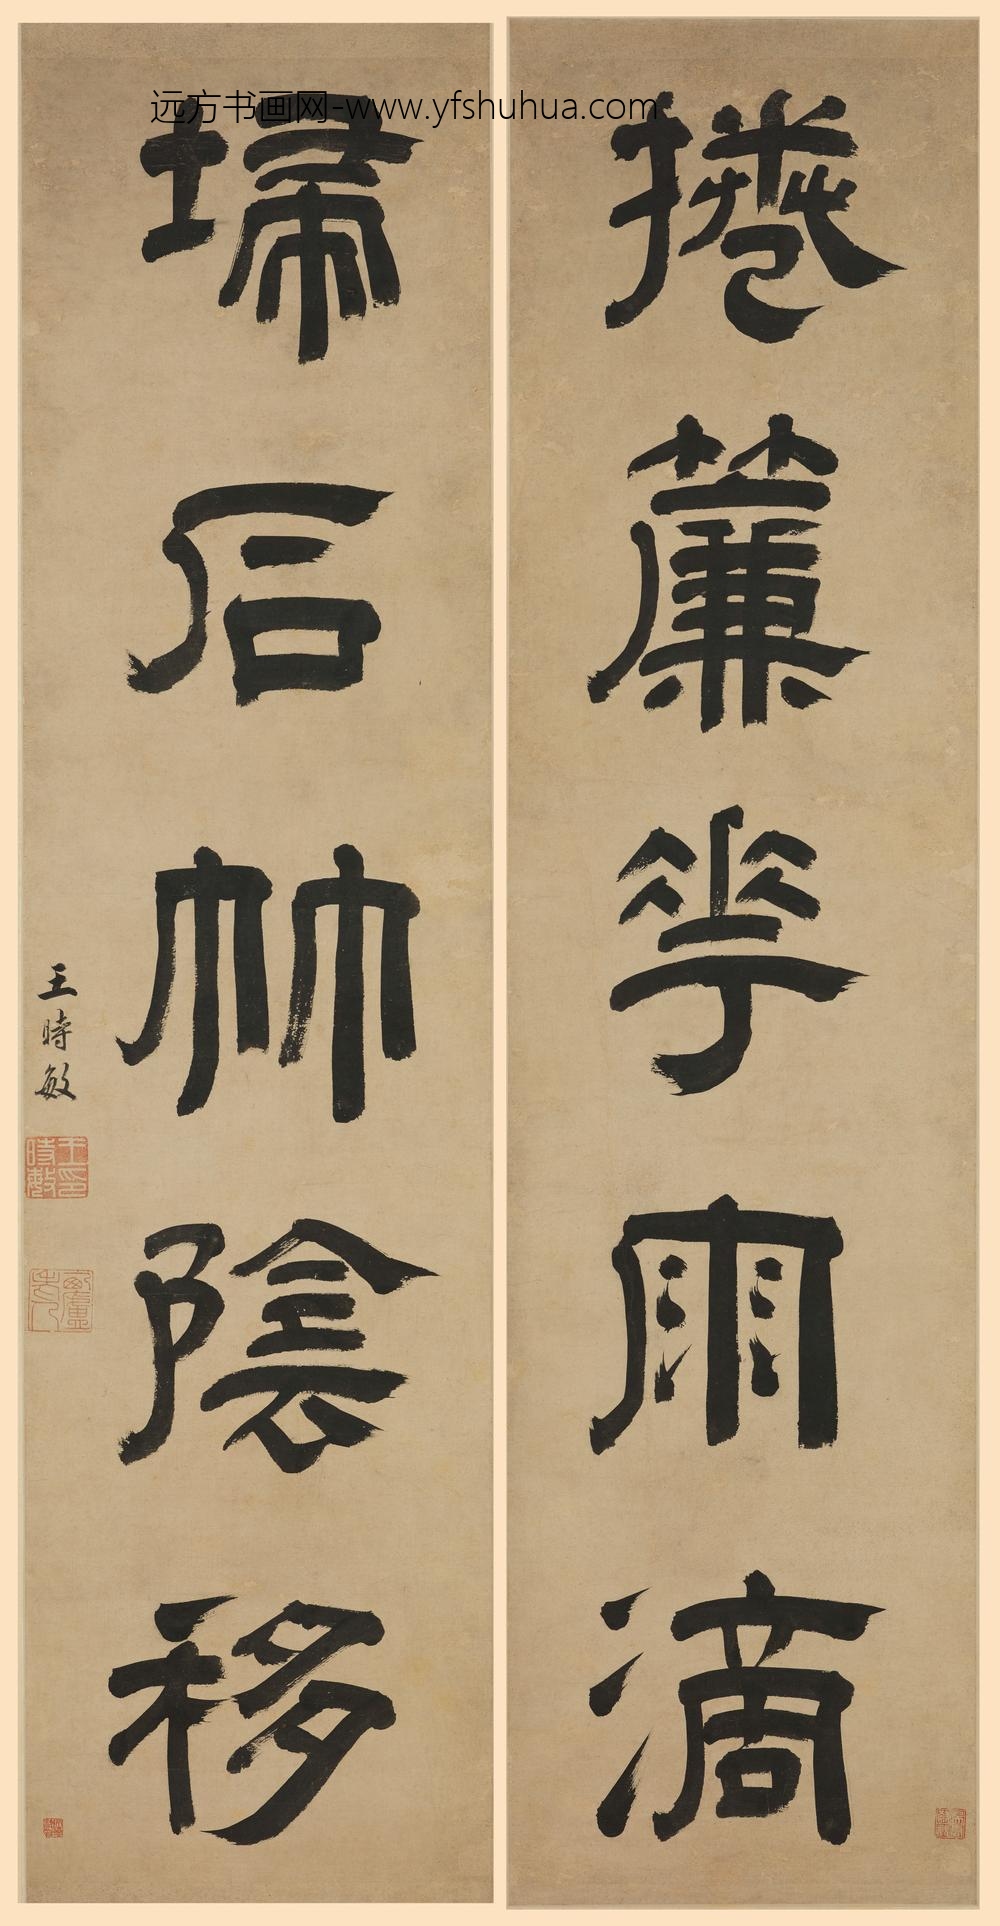 远方书画网-www.yfshuhua.com
捲簾花雨滴
埽石竹陰移
王時敏
王時敏印